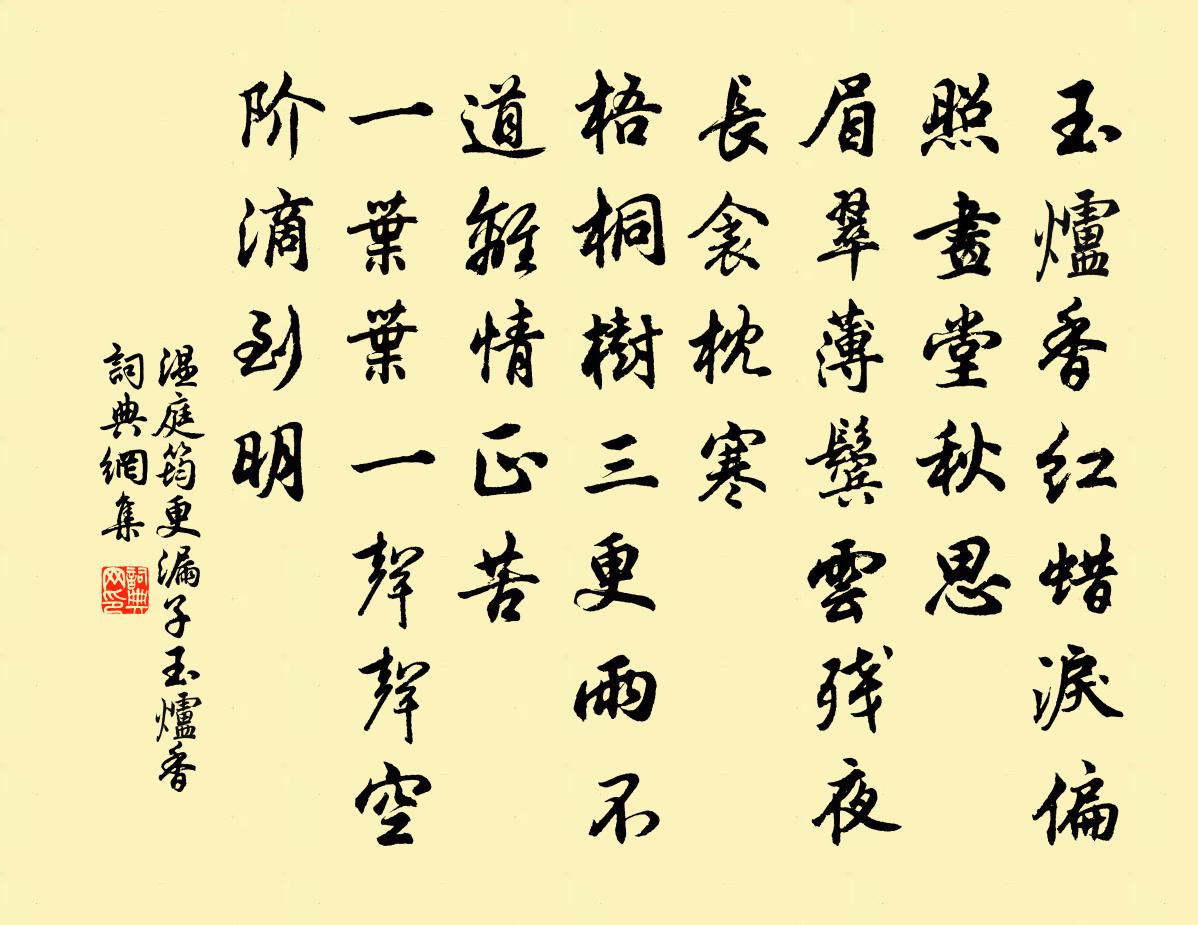 玉爐香红蜡淚偏
照畫堂秋思
眉翠薄鬓雲残夜
長衾枕寒
梧桐樹三更雨不
道離情正苦
一葉葉一聲聲空
阶滴到明
溫庭筠更漏子玉爐香
詞典網集
詞典网印